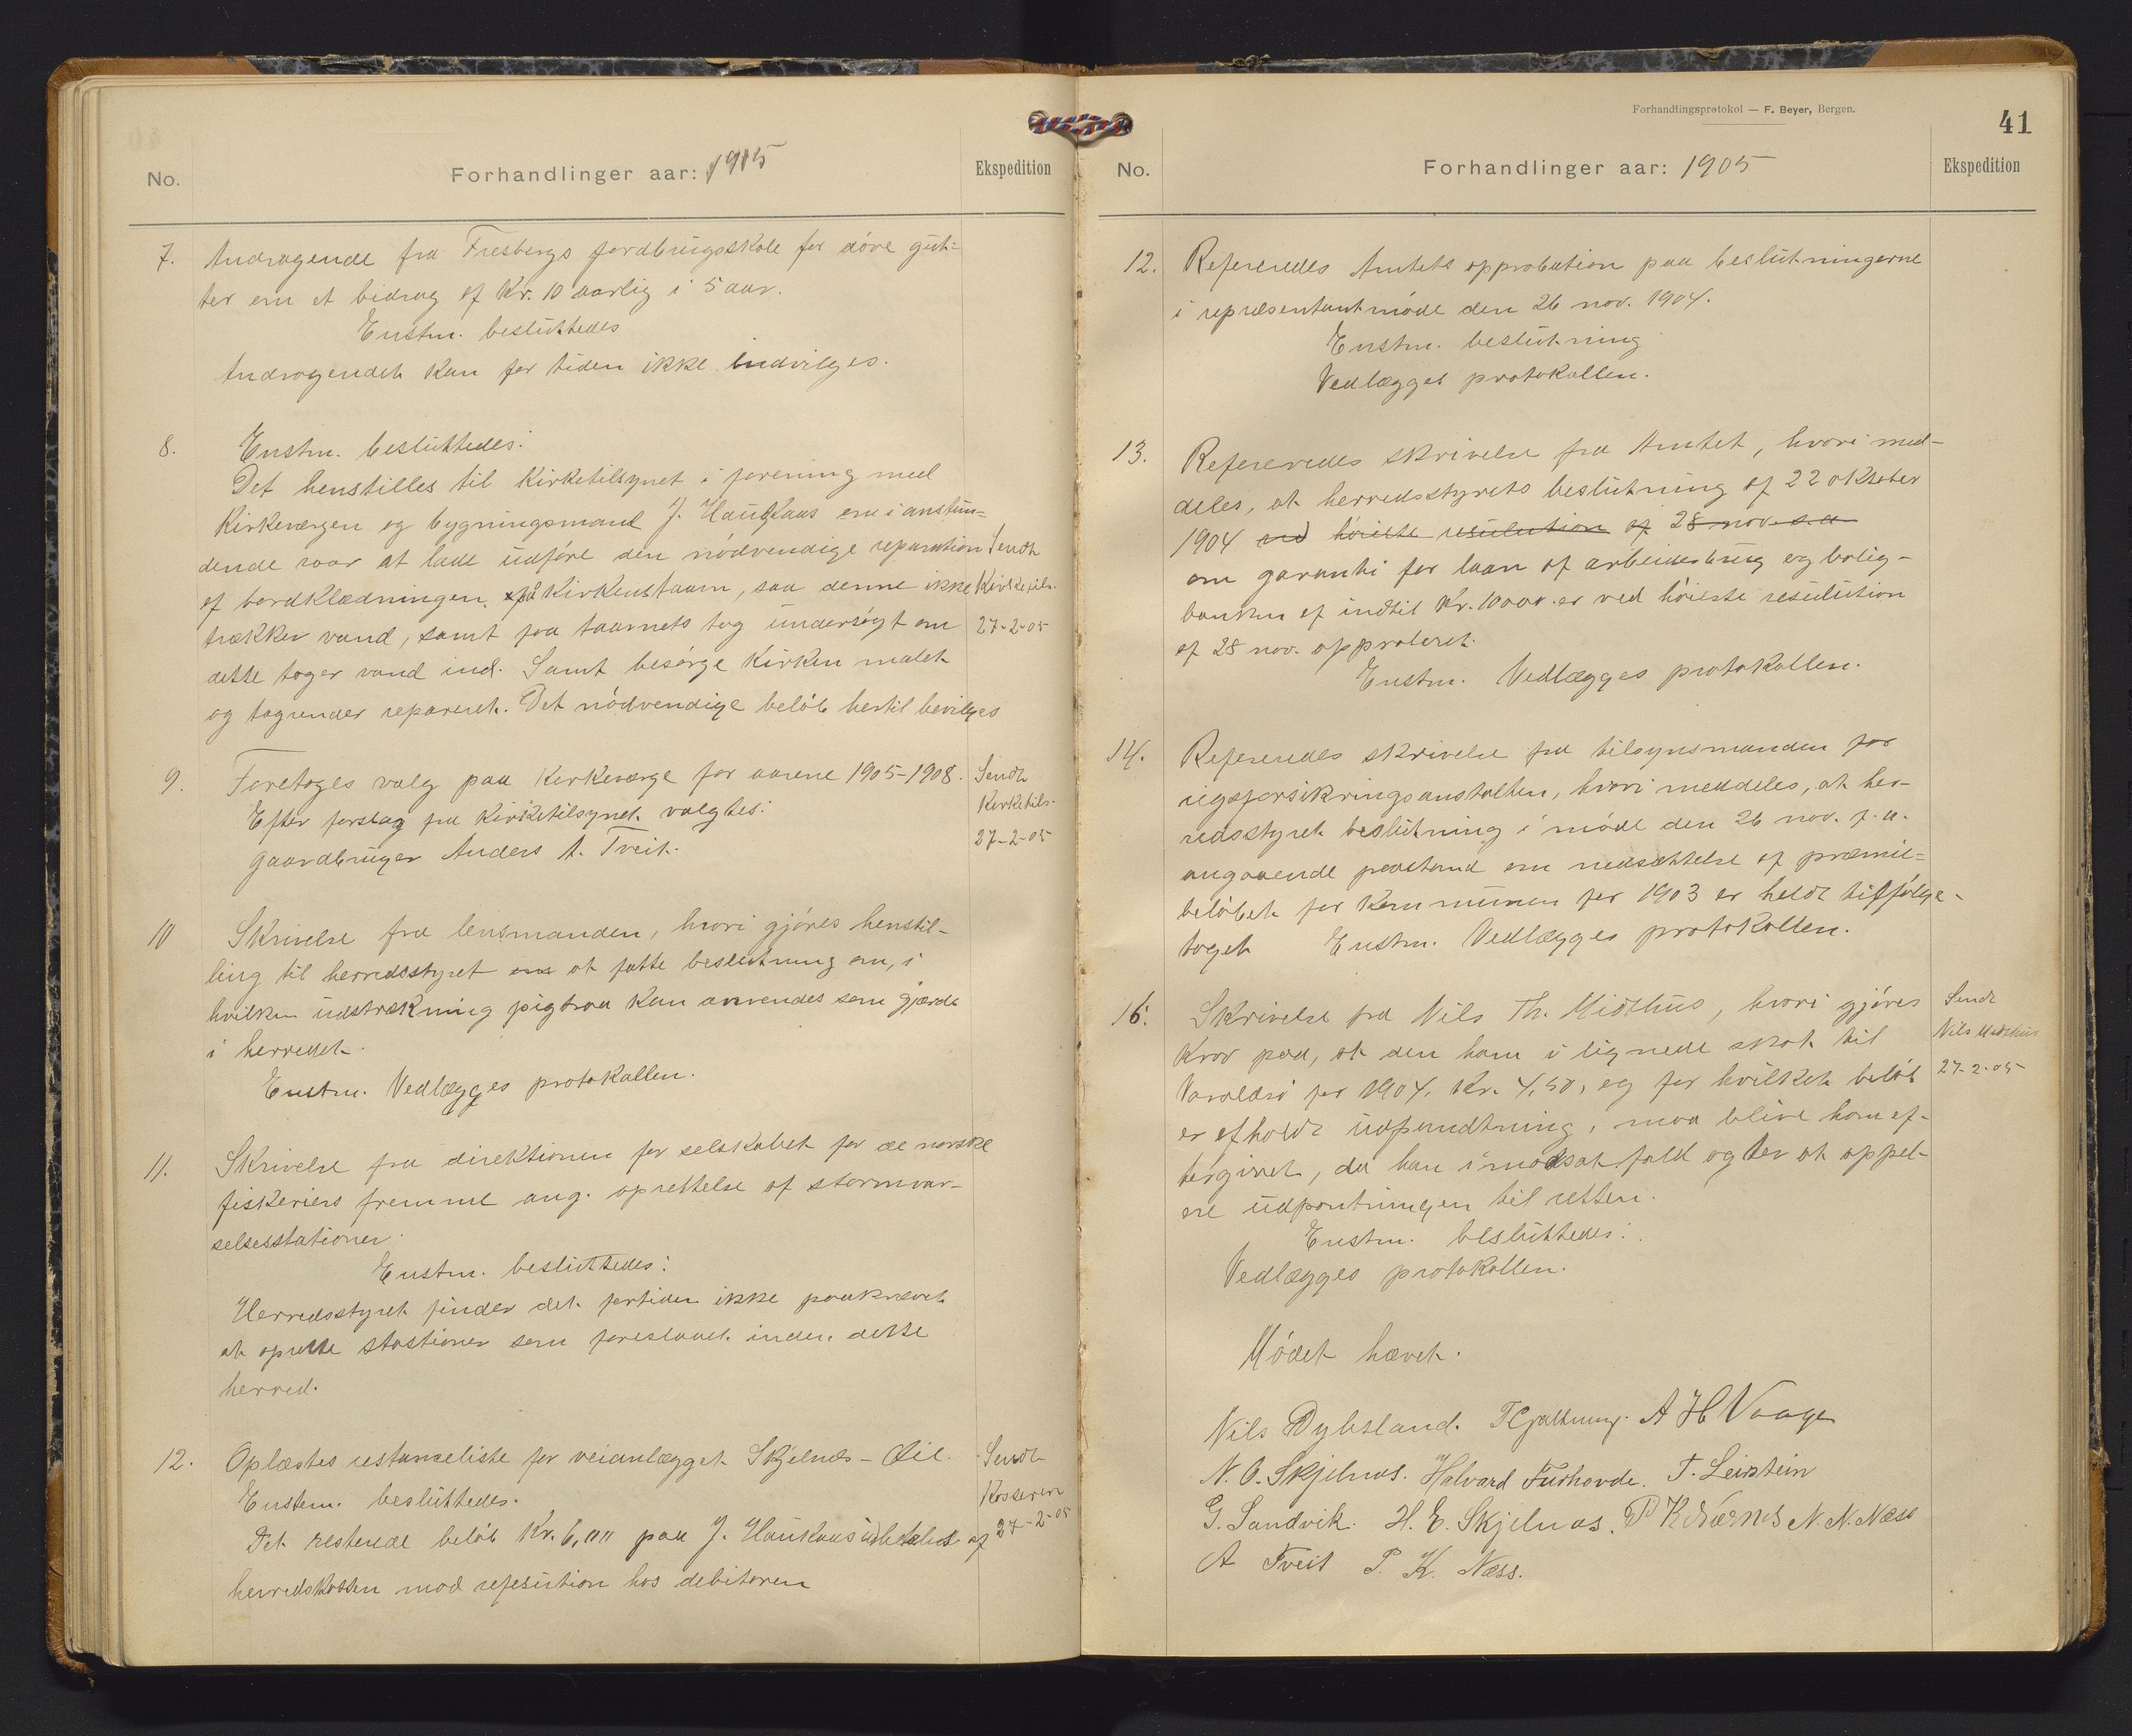 No.
Forhandlinger aar: 1905
Ekspedition
7. Andragende fra Fresbergs jordbrugsskole for døve gut-
ter om et bidrag af Kr. 10 aarlig i 5 aar.
Enstm. besluttedes
Andragendet kan for tiden ikke indvilges.
8. Enstm. besluttedes:
Det henstilles til Kirketilsynet i forening med
Kirkeværgen og bygningsmand J. Haukaas om i anstun-
dende vaar at lade udføre den nødvendige reparation
af bordklædningen på Kirkenstaarn, saa denne ikke
trækker vand, samt faa taarnets tag undersøgt om
dette tager vand ind. Samt besørge Kirken malet
og tagrender reparert. Det nødvendige beløb hertil bevilges
Sendt
Kirketils.
27-2-05
9. Foretoges valg paa Kirkeværge for aarene 1905-1908.
Efter forslag fra Kirketilsynet valgtes:
Gaardbruger Anders A. Tveit.
Sendt
Kirketils.
27-2-05
10 Skrivelse fra lensmanden, hvori gjøres henstil-
ling til herredsstyret om at fatte beslutning om, i
hvilken udstrækning pigtraa kan anvendes som gjærde
i herredet.
Enstm. Vedlægges protokollen.
11. Skrivelse fra direktionen for selskabet for de norske
fiskeriers fremme ang. oprettelse af stormvar-
selsesstationer.
Enstm. besluttedes:
Herredsstyret finder det fortiden ikke paakrævet
at oprette stastioner som foreslaaet inden dette
herred.
12. Oplæstes restanceliste for veianlægget Skjelnes - Øie.
Enstem. besluttedes.
Det resterende beløb Kr. 6,00 paa J. Haukaas udbetales af
herredskassen mod refusution hos debitoren
Sendt
Kasseren
27-2-05
Forhandlingsprotokol — F. Beyer, Bergen.
41
No.
Forhandlinger aar: 1905
Ekspedition
12. Refereredes Amtets approbation paa beslutningerne
i repræsentantmøde den 26 nov. 1904.
Enstm. beslutning
Vedlægges protokollen.
13. Refereredes skrivelse fra Amtet, hvori med-
deles, at herredsstyrets beslutning af 22 oktober
1904 ved høieste resulution af 28 nov. s.a.
om garanti for laan af arbeiderbrug og bolig-
banken af indtil Kr. 10000 er ved høieste resulution
af 28 nov. approberet.
Enstm. Vedlægges protokollen.
14. Refereredes skrivelse fra tilsynsmanden for
rigsforsikringsanstalten, hvori meddeles, at her-
redsstyret beslutning i møde den 26 nov. f.a.
angaaende paastand om nedsættelse af præmie-
beløbet for Kommunen for 1903 er heldt tilfølge-
taget Enstm. Vedlægges protokollen.
16. Skrivelse fra Nils Th. Midthus, hvori gjøres
Krav paa, at den ham i lignede skat til
Varaldsø for 1904, Kr. 4,50, og for hvilket beløb
er afholdt udpandtning, maa blive ham ef-
tergivet, da han i modsat fald agter at appel-
ere udpantningen til retten.
Enstm. besluttedes:
Vedlægges protokollen.
Sendt
Nils Midthus
27-2-05
Mødet hævet.
Nils Dybsland. T Gjeltnung. A H Vaage
N. O. Skjelnæs. Halvard Furhovde. T. Leirstein
G. Sandvik. H. E. Skjelnæs. P K Nærnes N. N. Næss
A Tveit P. K. Næss.